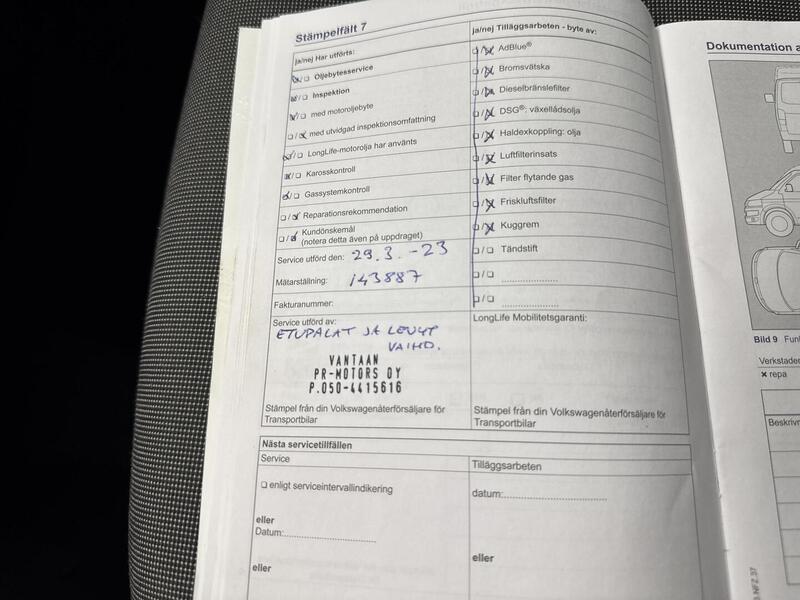 Stämpelfält 7
ja/nej Har utförts:
☒/☐ Oljebytesservice
☒/☐ Inspektion
☒/☐ med motoroljebyte
☐/☒ med utvidgad inspektionsomfattning
☒/☐ LongLife-motorolja har använts
☒/☐ Karosskontroll
☒/☐ Gassystemkontroll
☐/☒ Reparationsrekommendation
☐/☒ Kundönskemål
(notera detta även på uppdraget)
Service utförd den: 29.3.-23
Mätarställning: 143887
Fakturanummer:
Service utförd av:
ETUPALAT JA LEVYT
VAIHD.
VANTAAN
PR-MOTORS OY
P.050-4415616
Stämpel från din Volkswagenåterförsäljare för
Transportbilar
ja/nej Tilläggsarbeten - byte av:
☐/☒ AdBlue®
☐/☒ Bromsvätska
☐/☒ Dieselbränslefilter
☐/☒ DSG®: växellådsolja
☐/☒ Haldexkoppling: olja
☐/☒ Luftfilterinsats
☐/☒ Filter flytande gas
☐/☒ Friskluftsfilter
☐/☒ Kuggrem
☐/☐ Tändstift
☐/☐ ....................
☐/☐ ....................
LongLife Mobilitetsgaranti:
Stämpel från din Volkswagenåterförsäljare för
Transportbilar
Nästa servicetillfällen
Service
☐ enligt serviceintervallindikering
eller
Datum:....................
eller
Tilläggsarbeten
datum:....................
eller
Dokumentation
Bild 9
Verkstaden
× repa